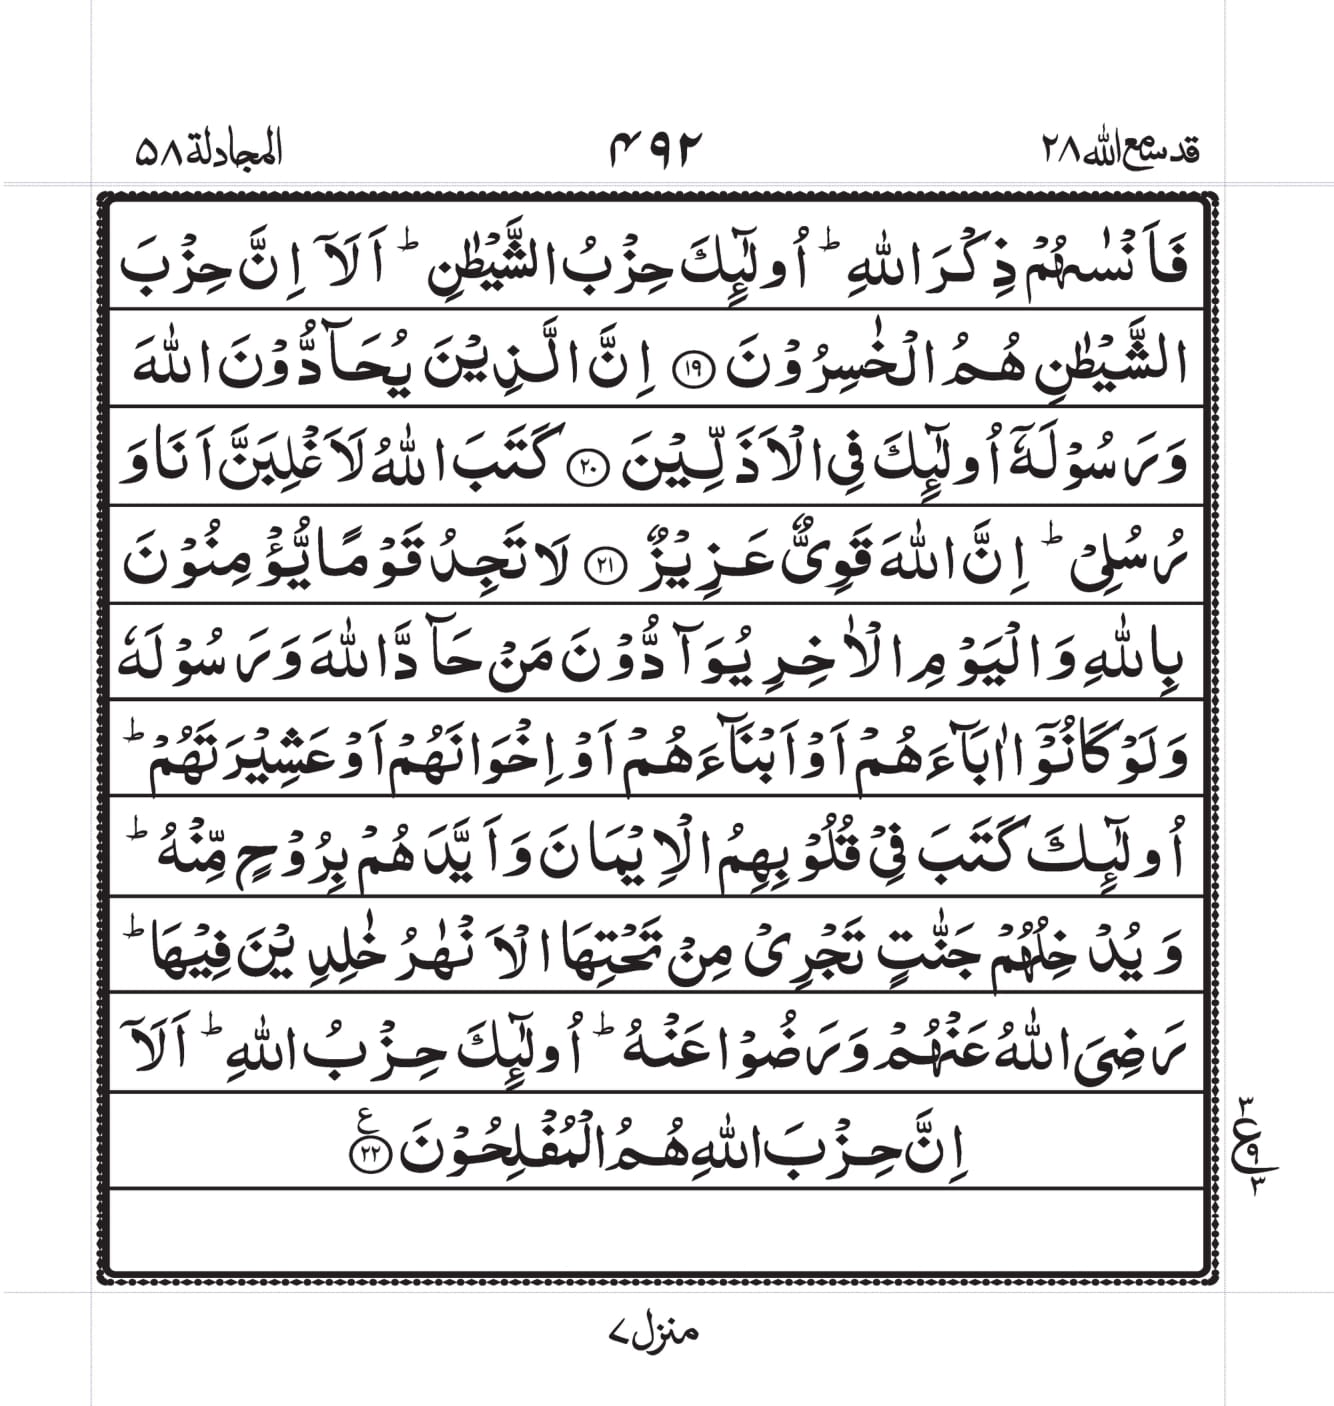 قد سمع الله ٢٨
۴٩٢
المجادلة ۵٨
فَاَنْسٰىهُمْ ذِكْرَ اللّٰهِ ؕ اُولٰٓئِكَ حِزْبُ الشَّيْطٰنِ ؕ اَلَاۤ اِنَّ حِزْبَ
الشَّيْطٰنِ هُمُ الْخٰسِرُوْنَ ﴿١٩﴾ اِنَّ الَّذِيْنَ يُحَآدُّوْنَ اللّٰهَ
وَرَسُوْلَهٗۤ اُولٰٓئِكَ فِي الْاَذَلِّيْنَ ﴿٢٠﴾ كَتَبَ اللّٰهُ لَاَغْلِبَنَّ اَنَا وَ
رُسُلِيْ ؕ اِنَّ اللّٰهَ قَوِيٌّ عَزِيْزٌ ﴿٢١﴾ لَا تَجِدُ قَوْمًا يُّؤْمِنُوْنَ
بِاللّٰهِ وَالْيَوْمِ الْاٰخِرِ يُوَآدُّوْنَ مَنْ حَآدَّ اللّٰهَ وَرَسُوْلَهٗ
وَلَوْ كَانُوْۤا اٰبَآءَهُمْ اَوْ اَبْنَآءَهُمْ اَوْ اِخْوَانَهُمْ اَوْ عَشِيْرَتَهُمْ ؕ
اُولٰٓئِكَ كَتَبَ فِيْ قُلُوْبِهِمُ الْاِيْمَانَ وَاَيَّدَهُمْ بِرُوْحٍ مِّنْهُ ؕ
وَيُدْخِلُهُمْ جَنّٰتٍ تَجْرِيْ مِنْ تَحْتِهَا الْاَنْهٰرُ خٰلِدِيْنَ فِيْهَا ؕ
رَضِيَ اللّٰهُ عَنْهُمْ وَرَضُوْا عَنْهُ ؕ اُولٰٓئِكَ حِزْبُ اللّٰهِ ؕ اَلَاۤ
اِنَّ حِزْبَ اللّٰهِ هُمُ الْمُفْلِحُوْنَ ﴿٢٢﴾ ع
٣
ع ٩
٣
منزل ٧